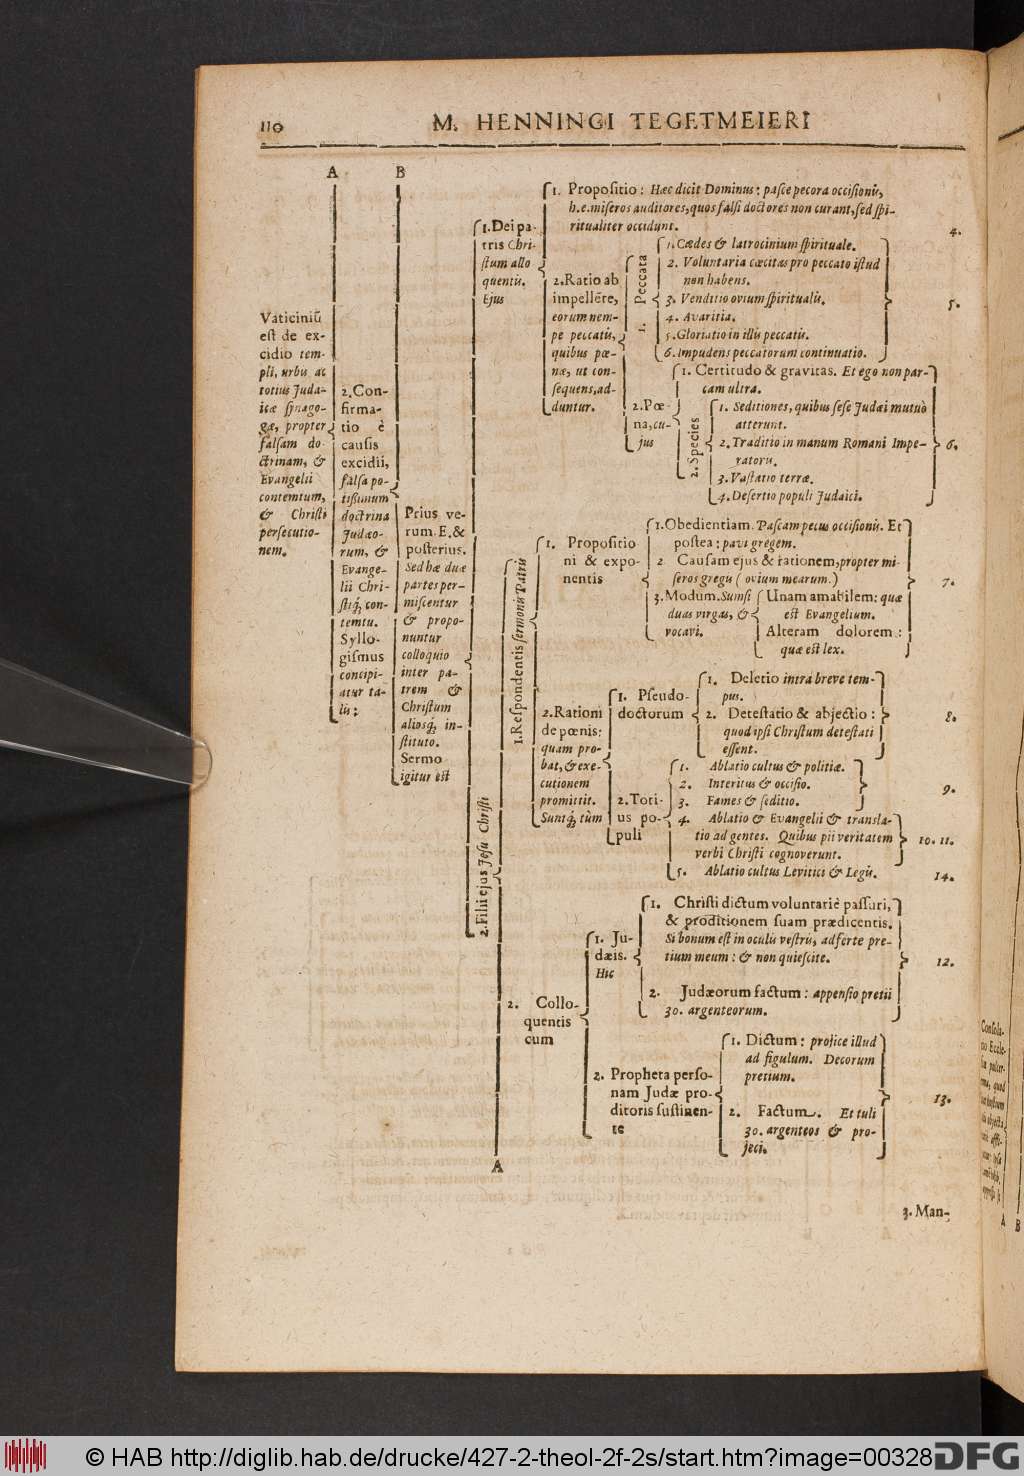 110
M. HENNINGI TEGETMEIERI
A
B
Vaticiniũ
est de ex-
cidio tem-
pli, urbis ac
totius Juda-
icæ synago-
gæ, propter
falsam do-
ctrinam, &
Evangelii
contemtum,
& Christi
persecutio-
nem.
2. Con-
firma-
tio è
causis
excidii,
falsa po-
tißimum
doctrina
Judæo-
rum, &
Evange-
lii Chri-
stiq́; con-
temtu.
Syllo-
gismus
concipi-
atur ta-
lis:
Prius ve-
rum. E. &
posterius.
Sed hæ duæ
partes per-
miscentur
& propo-
nuntur
colloquio
inter pa-
trem &
Christum
aliosq́; in-
stituto.
Sermo
igitur est
1. Dei pa-
tris Chri-
stum allo
quentis.
Ejus
1. Propositio: Hæc dicit Dominus: pasce pecora occisionis,
h. e. miseros auditores, quos falsi doctores non curant, sed spi-
ritualiter occidunt.
4.
2. Ratio ab
impellẽte,
eorum nem-
pe peccatis,
quibus pœ-
næ, ut con-
sequens, ad-
duntur.
1. Peccata
1. Cædes & latrocinium spirituale.
2. Voluntaria cæcitas pro peccato istud
non habens.
3. Venditio ovium spiritualis.
4. Avaritia.
5. Gloriatio in illis peccatis.
6. Impudens peccatorum continuatio.
5.
2. Pœ-
na, cu-
jus
1. Certitudo & gravitas. Et ego non par-
cam ultra.
2. Species
1. Seditiones, quibus sese Judæi mutuò
atterunt.
2. Traditio in manum Romani Impe-
ratoris.
3. Vastatio terræ.
4. Desertio populi Judaici.
6.
2. Filii ejus Jesu Christi
1. Respondentis sermonis Patris
1. Propositio
ni & expo-
nentis
1. Obedientiam. Pascam pecus occisionis. Et
postea: pavi gregem.
2 Causam ejus & rationem, propter mi-
seros gregis (ovium mearum.)
3. Modum. Sumsi
duas virgas, &
vocavi.
Unam amabilem: quæ
est Evangelium.
Alteram dolorem:
quæ est lex.
7.
2. Rationi
de pœnis:
quam pro-
bat, & exe-
cutionem
promittit.
Suntq́; tùm
1. Pseudo-
doctorum
1. Deletio intra breve tem-
pus.
2. Detestatio & abjectio:
quod ipsi Christum detestati
essent.
8.
2. Toti-
us po-
puli
1. Ablatio cultus & politiæ.
2. Interitus & occisio.
3. Fames & seditio.
9.
4. Ablatio & Evangelii & transla-
tio ad gentes. Quibus pii veritatem
verbi Christi cognoverunt.
10. 11.
5. Ablatio cultus Levitici & Legis.
14.
2. Collo-
quentis
cum
1. Ju-
dæis.
Hic
1. Christi dictum voluntariè passuri,
& proditionem suam prædicentis.
Si bonum est in oculis vestris, adferte pre-
tium meum: & non quiescite.
2. Judæorum factum: appensio pretii
30. argenteorum.
12.
2. Propheta perso-
nam Judæ pro-
ditoris sustinen-
te
1. Dictum: projice illud
ad figulum. Decorum
pretium.
2. Factum. Et tuli
30. argenteos & pro-
jeci.
13.
A
3. Man-
A
B
© HAB http://diglib.hab.de/drucke/427-2-theol-2f-2s/start.htm?image=00328
DFG